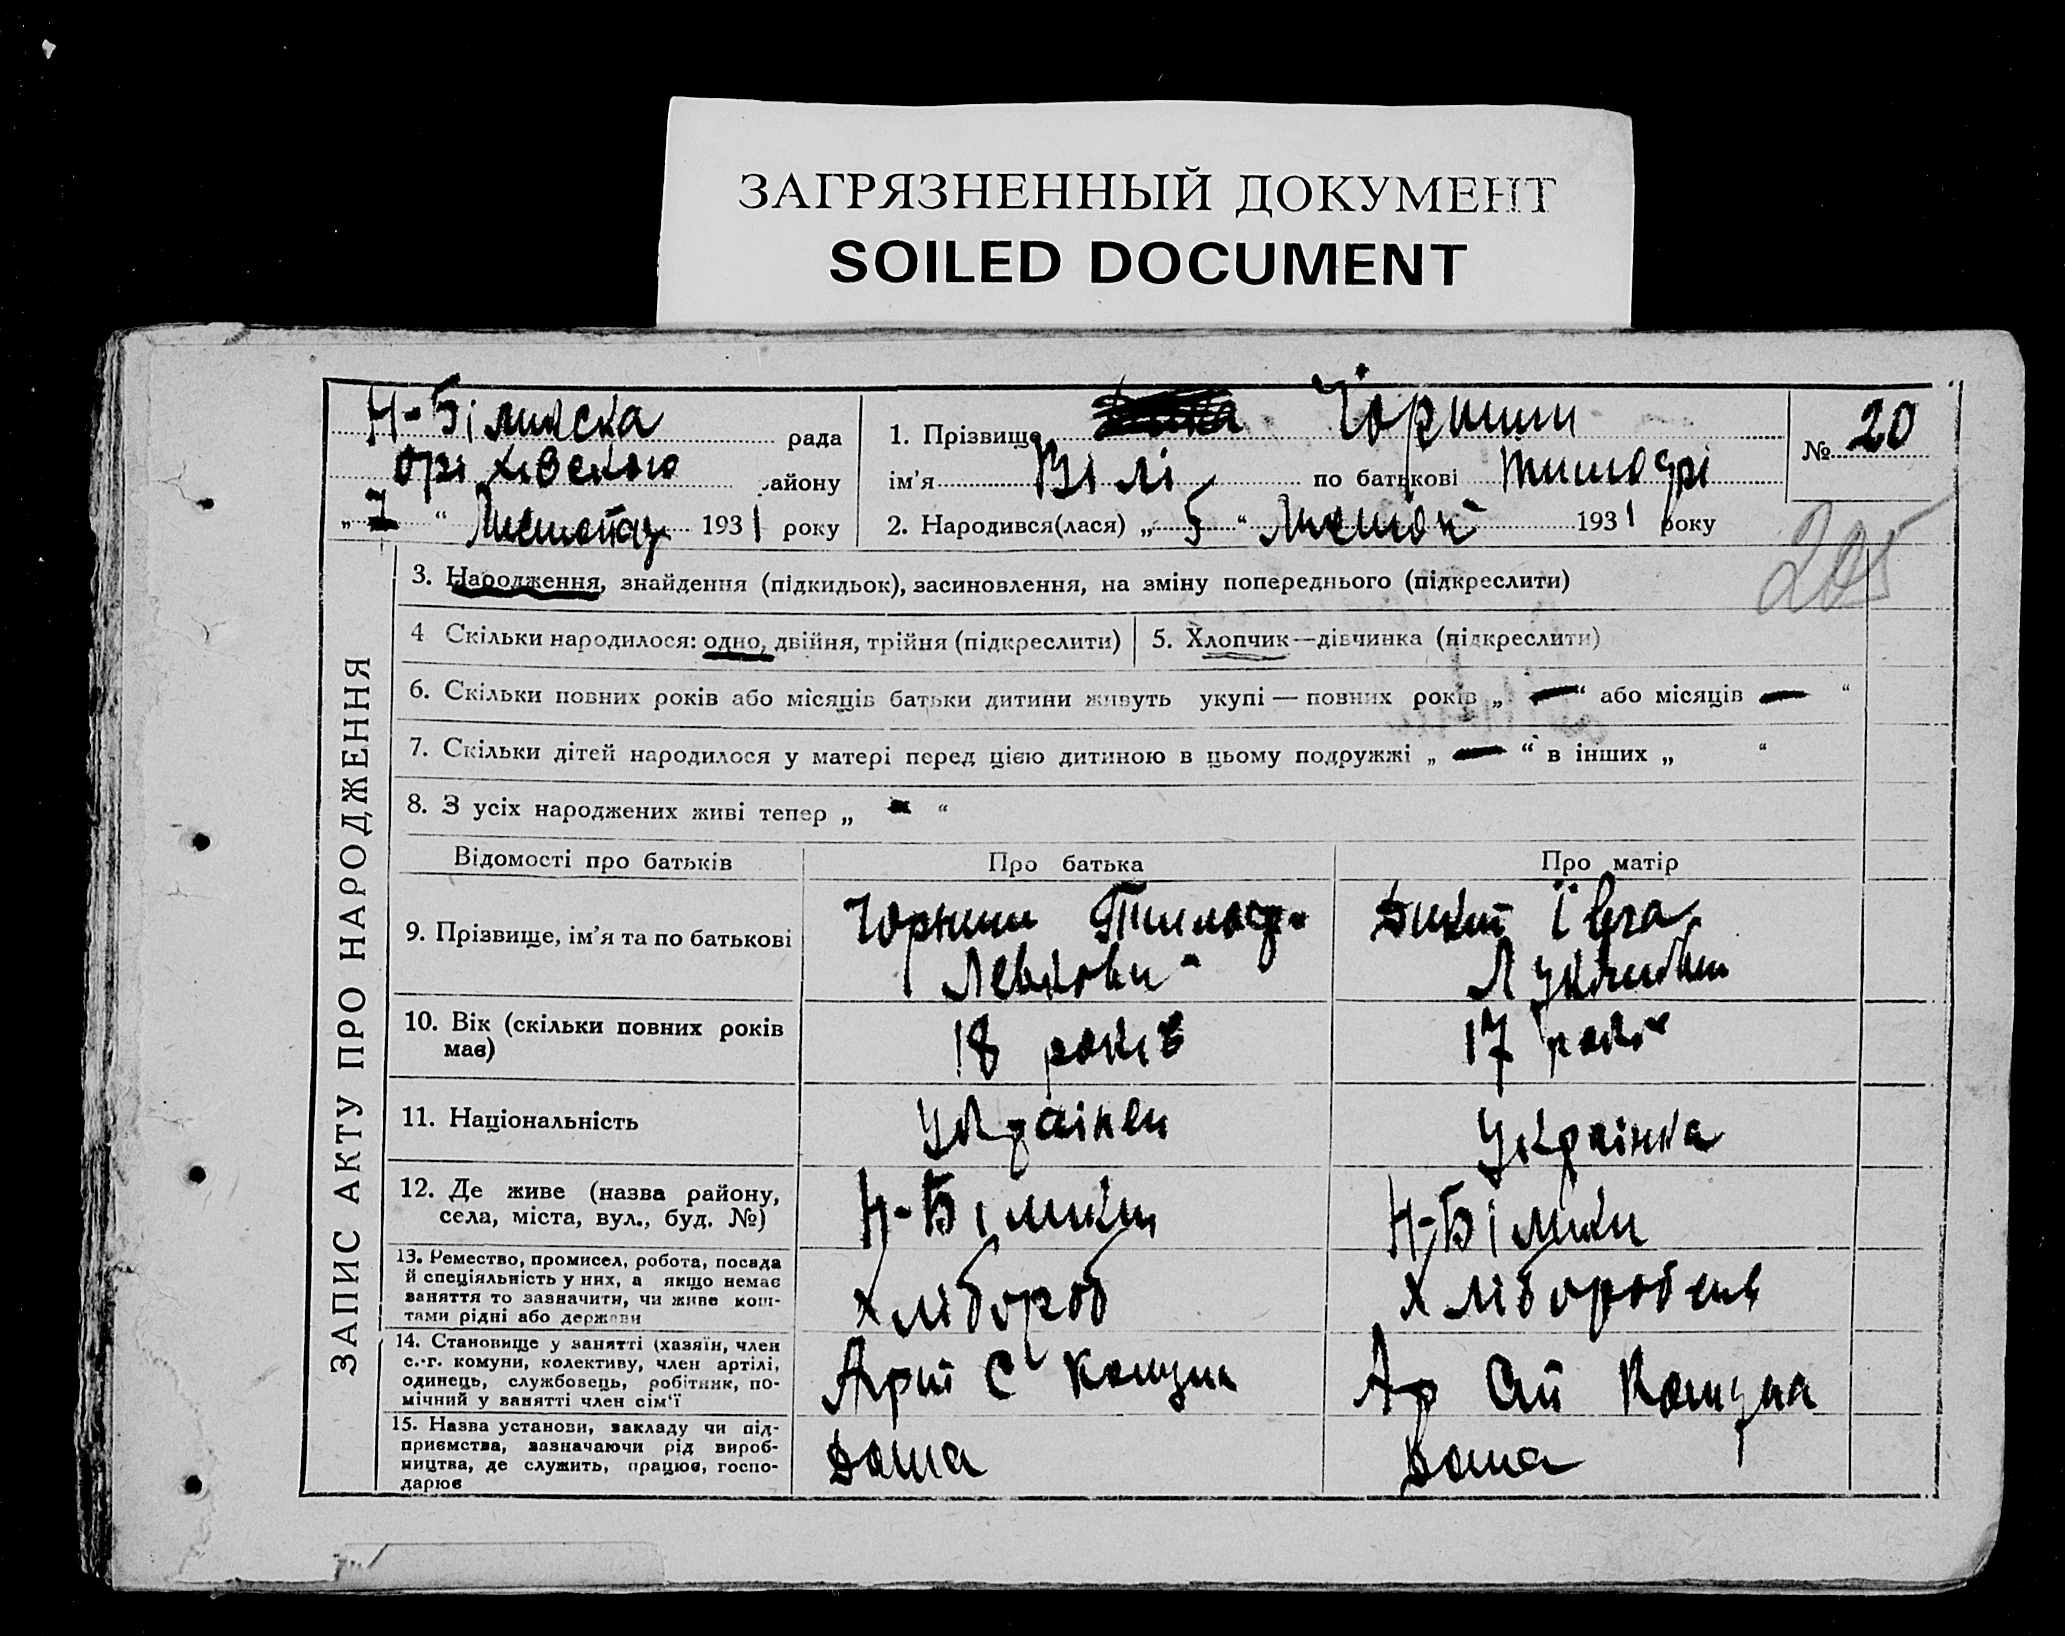 ЗАГРЯЗНЕННЫЙ ДОКУМЕНТ
SOILED DOCUMENT
Н-Білинска рада
оріхівского району
„7“ Листопад 1931 року
1. Прізвище
ім’я Вілі по батькові
2. Народився(лася) „5“ 1931 року
№ 20
205
ЗАПИС АКТУ ПРО НАРОДЖЕННЯ
3. Народження, знайдення (підкидьок), засиновлення, на зміну попереднього (підкреслити)
4 Скільки народилося: одно, двійня, трійня (підкреслити)
5. Хлопчик—дівчинка (підкреслити)
6. Скільки повних років або місяців батьки дитини живуть укупі — повних років „ — “ або місяців — “
7. Скільки дітей народилося у матері перед цією дитиною в цьому подружжі „ — “ в інших „ “
8. З усіх народжених живі тепер „ — “
Відомості про батьків
Про батька
Про матір
9. Прізвище, ім’я та по батькові
10. Вік (скільки повних років
має)
18 років
17 років
11. Національність
Українец
Українка
12. Де живе (назва району,
села, міста, вул., буд. №)
Н-Білики
Н-Білики
13. Ремество, промисел, робота, посада
й спеціяльність у них, а якщо немає
заняття то зазначити, чи живе кош-
тами рідні або держави
Хлібороб
14. Становище у занятті (хазяїн, член
с.-г. комуни, колективу, член артілі,
одинець, службовець, робітник, по-
мічний у занятті член сім’ї
15. Назва установи, закладу чи під-
приємства, зазначаючи рід вироб-
ництва, де служить, працює, госпо-
дарює
Дома
Дома